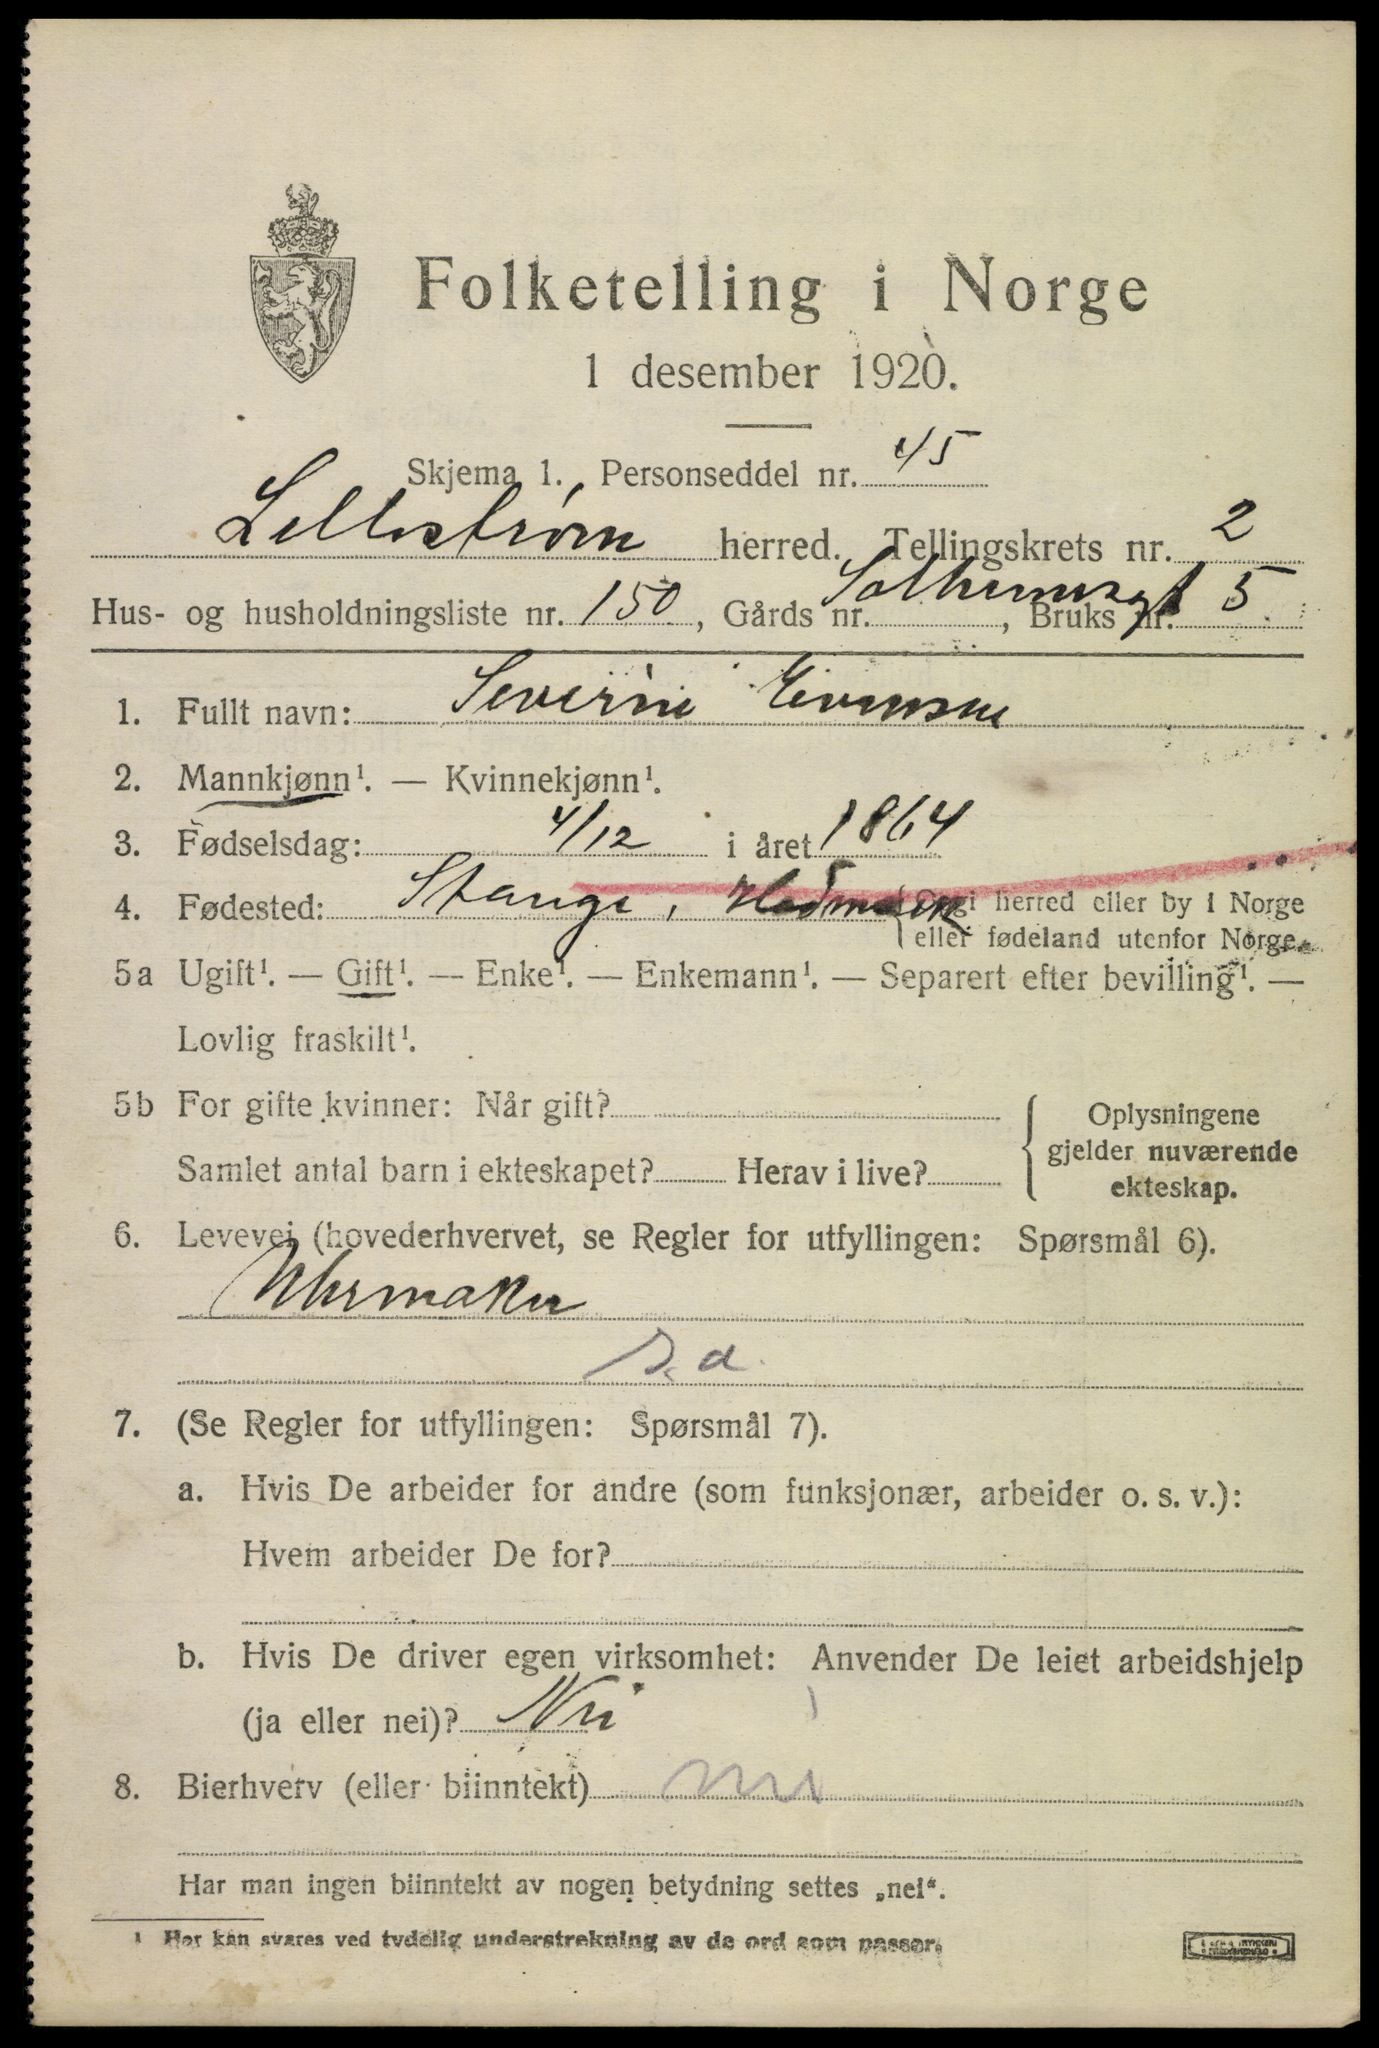 Folketelling i Norge
1 desember 1920.
Skjema 1. Personseddel nr. 45
Lillestrøm herred. Tellingskrets nr. 2
Hus- og husholdningsliste nr. 150, Gårds nr. Solheimsgt 5, Bruks nr.
1. Fullt navn: Severin Evensen
2. Mannkjønn¹. — Kvinnekjønn¹.
3. Fødselsdag: 4/12 i året 1864
4. Fødested: Stange, Hedmark {Opgi herred eller by i Norge
eller fødeland utenfor Norge.
5a Ugift¹. — Gift¹. — Enke¹. — Enkemann¹. — Separert efter bevilling¹. —
Lovlig fraskilt¹.
5b For gifte kvinner: Når gift?
Samlet antal barn i ekteskapet? Herav i live?
Oplysningene
gjelder nuværende
ekteskap.
6. Levevei (hovederhvervet, se Regler for utfyllingen: Spørsmål 6).
Uhrmaker
s. a.
7. (Se Regler for utfyllingen: Spørsmål 7).
a. Hvis De arbeider for andre (som funksjonær, arbeider o. s. v.):
Hvem arbeider De for?
b. Hvis De driver egen virksomhet: Anvender De leiet arbeidshjelp
(ja eller nei)? Nei
8. Bierhverv (eller biinntekt) nei
Har man ingen biinntekt av nogen betydning settes „nei“.
¹ Her kan svares ved tydelig understrekning av de ord som passer.